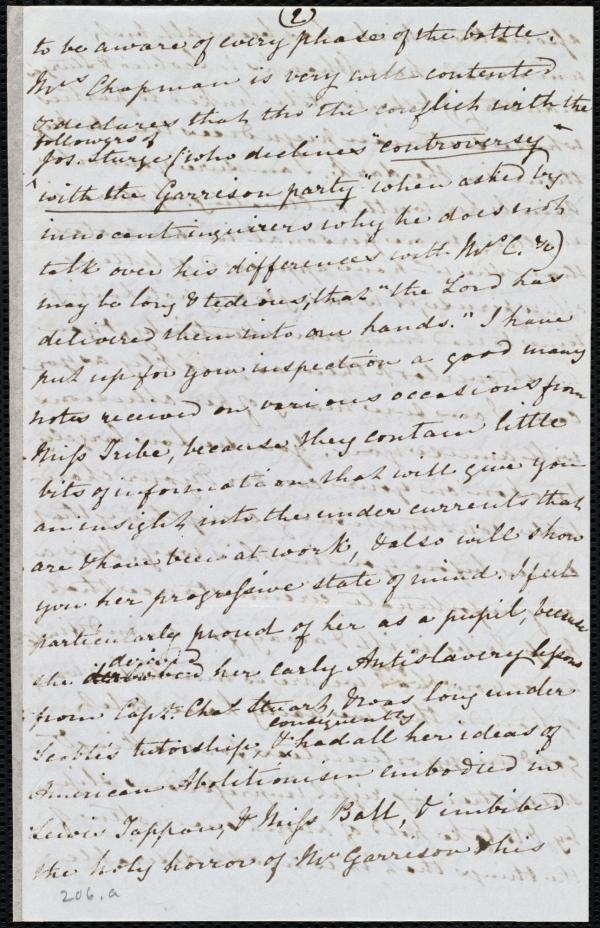 (2)
to be aware of every phase of the battle.
Mrs Chapman is very well contented
& declares that tho' "the conflict with the
followers of
Jos. Sturge (who declines "controversy
with the Garrison party" when asked by
innocent inquirers why he does not
talk over his differences with Mrs C. &c)
may be long & tedious, that "the Lord has
delivered them into our hands." I have
put up for your inspection a good many
notes received on various occasions from
Miss Tribe, because they contain little
bits of information that will give you
an insight into the under currents that
are & have been at work, & also will show
you her progressive state of mind. I feel
particularly proud of her as a pupil, because
derived
she her early Antislavery lessons
from Capt. Chas. Stuart, & was long under
consequently
Scoble's tutorship, & had all her ideas of
American Abolitionism embodied in
Lewis Tappan, & Miss Ball, & imbibed
the holy horror of Mr Garrison & his
206.a